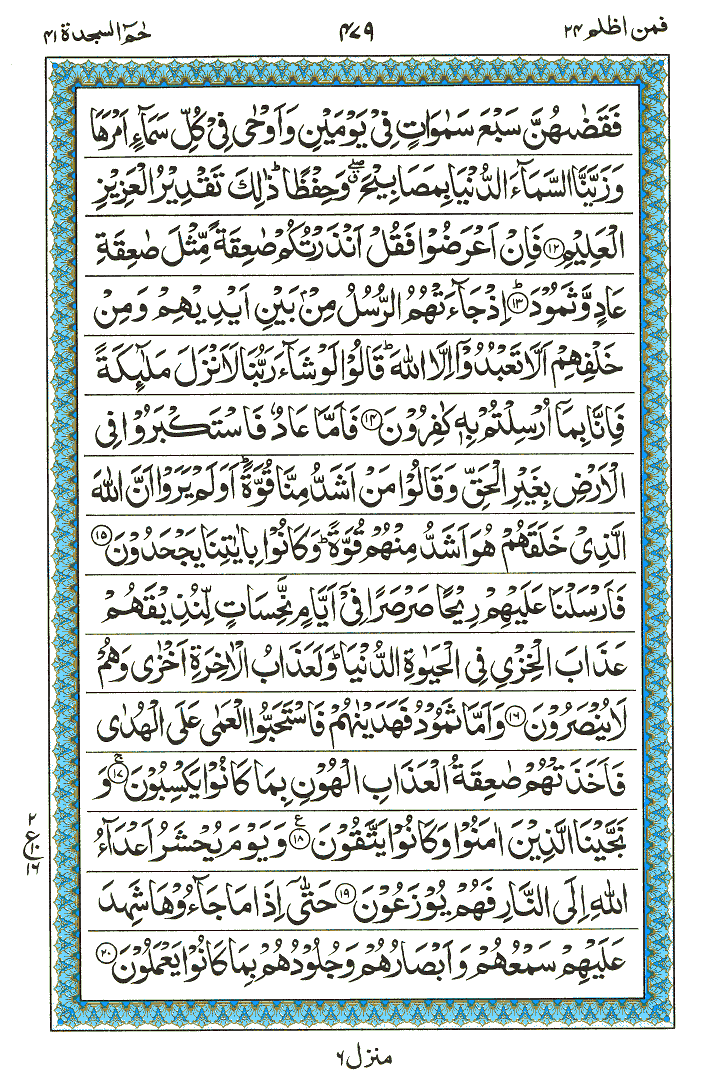 فمن اظلم ۲۴
۴۷۹
حٰمٓ السجدة ۴۱
فَقَضٰىهُنَّ سَبْعَ سَمٰوَاتٍ فِیْ یَوْمَیْنِ وَاَوْحٰی فِیْ كُلِّ سَمَآءٍ اَمْرَهَا
وَزَیَّنَّا السَّمَآءَ الدُّنْیَا بِمَصَابِیْحَ ۖ وَحِفْظًا ؕ ذٰلِكَ تَقْدِیْرُ الْعَزِیْزِ
الْعَلِیْمِ ۝۱۲ فَاِنْ اَعْرَضُوْا فَقُلْ اَنْذَرْتُكُمْ صٰعِقَةً مِّثْلَ صٰعِقَةِ
عَادٍ وَّثَمُوْدَ ؕ۝۱۳ اِذْ جَآءَتْهُمُ الرُّسُلُ مِنْۢ بَیْنِ اَیْدِیْهِمْ وَمِنْ
خَلْفِهِمْ اَلَّا تَعْبُدُوْۤا اِلَّا اللّٰهَ ؕ قَالُوْا لَوْ شَآءَ رَبُّنَا لَاَنْزَلَ مَلٰٓىِٕكَةً
فَاِنَّا بِمَاۤ اُرْسِلْتُمْ بِهٖ كٰفِرُوْنَ ۝۱۴ فَاَمَّا عَادٌ فَاسْتَكْبَرُوْا فِی
الْاَرْضِ بِغَیْرِ الْحَقِّ وَقَالُوْا مَنْ اَشَدُّ مِنَّا قُوَّةً ؕ اَوَلَمْ یَرَوْا اَنَّ اللّٰهَ
الَّذِیْ خَلَقَهُمْ هُوَ اَشَدُّ مِنْهُمْ قُوَّةً ؕ وَكَانُوْا بِاٰیٰتِنَا یَجْحَدُوْنَ ۝۱۵
فَاَرْسَلْنَا عَلَیْهِمْ رِیْحًا صَرْصَرًا فِیْۤ اَیَّامٍ نَّحِسَاتٍ لِّنُذِیْقَهُمْ
عَذَابَ الْخِزْیِ فِی الْحَیٰوةِ الدُّنْیَا ؕ وَلَعَذَابُ الْاٰخِرَةِ اَخْزٰی وَهُمْ
لَا یُنْصَرُوْنَ ۝۱۶ وَاَمَّا ثَمُوْدُ فَهَدَیْنٰهُمْ فَاسْتَحَبُّوا الْعَمٰی عَلَی الْهُدٰی
فَاَخَذَتْهُمْ صٰعِقَةُ الْعَذَابِ الْهُوْنِ بِمَا كَانُوْا یَكْسِبُوْنَ ۚ۝۱۷ وَ
نَجَّیْنَا الَّذِیْنَ اٰمَنُوْا وَكَانُوْا یَتَّقُوْنَ ۝۱۸ ع وَیَوْمَ یُحْشَرُ اَعْدَآءُ
اللّٰهِ اِلَی النَّارِ فَهُمْ یُوْزَعُوْنَ ۝۱۹ حَتّٰۤی اِذَا مَا جَآءُوْهَا شَهِدَ
عَلَیْهِمْ سَمْعُهُمْ وَاَبْصَارُهُمْ وَجُلُوْدُهُمْ بِمَا كَانُوْا یَعْمَلُوْنَ ۝۲۰
۲
ع ۱۰
۱۶
منزل ۶